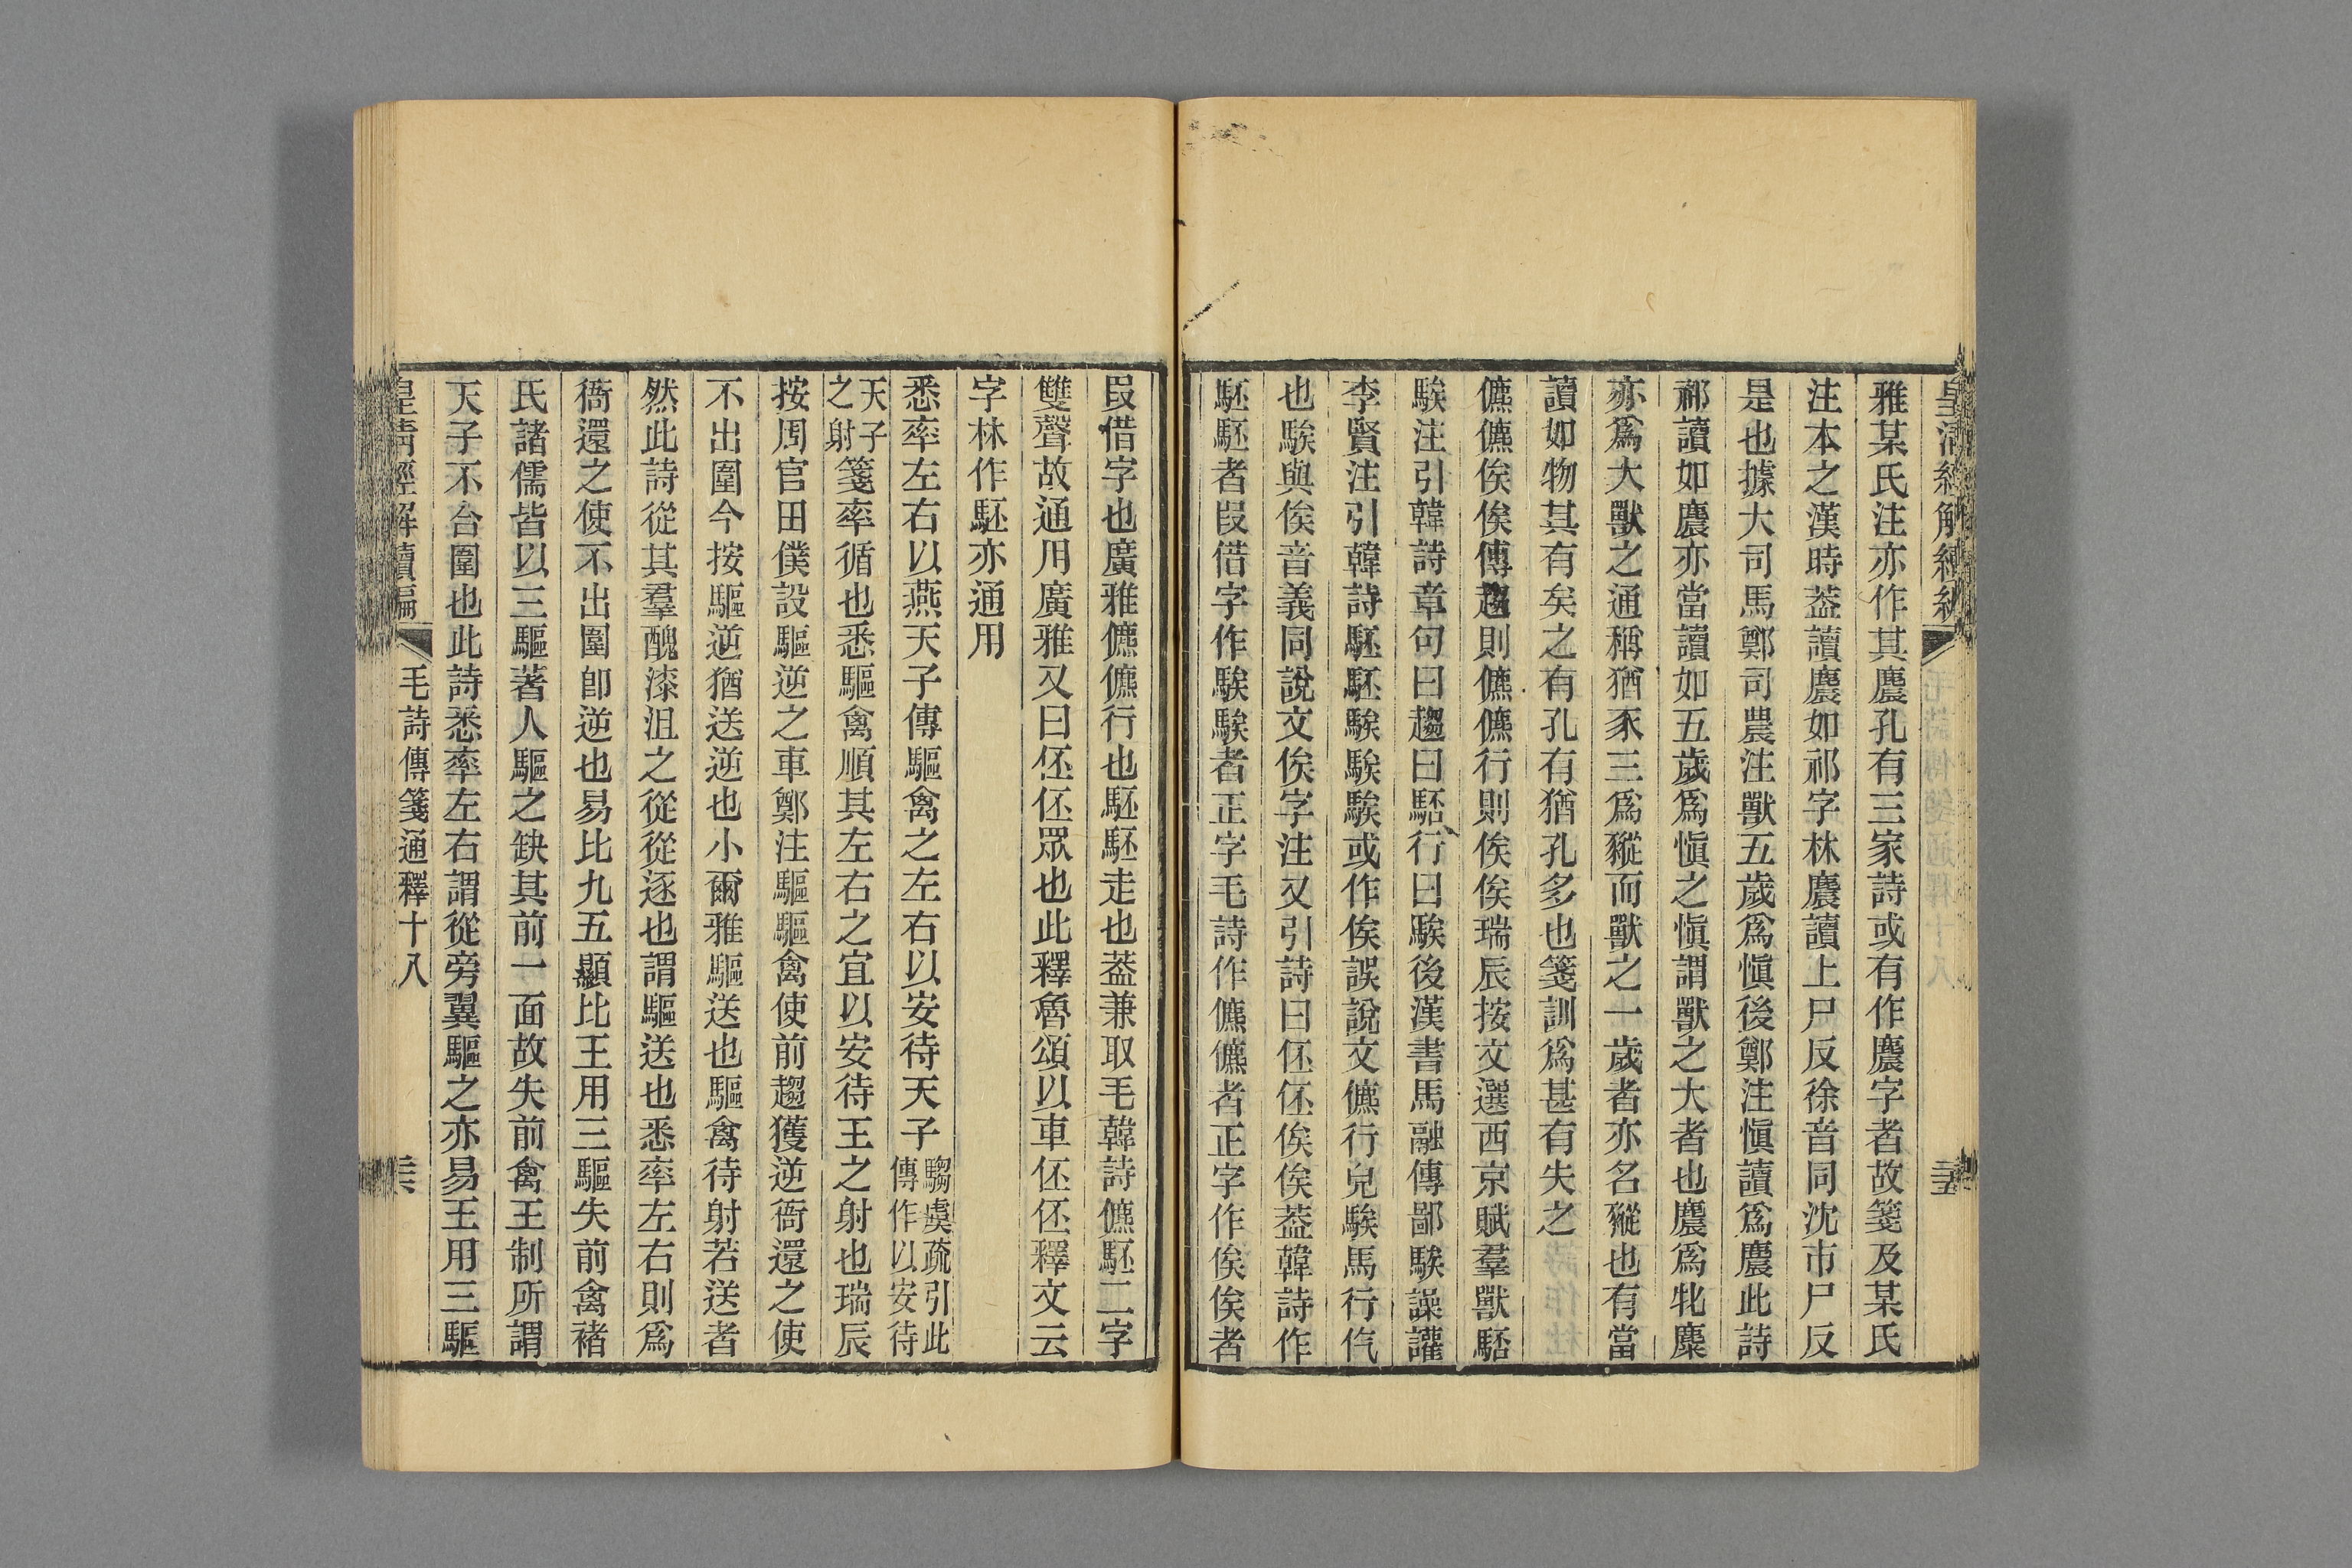 皇清經解續編
三五
雅某氏注亦作其麎孔有三家詩或有作麎字者故箋及某氏
注本之漢時葢讀麎如祁字林麎讀上尸反徐音同沈市尸反
是也據大司馬鄭司農注獸五歲爲愼後鄭注愼讀爲麎此詩
祁讀如麎亦當讀如五歲爲愼之愼謂獸之大者也麎爲牝麋
亦爲大獸之通稱猶豕三爲豵而獸之一歲者亦名豵也有當
讀如物其有矣之有孔有猶孔多也箋訓爲甚有失之
儦儦俟俟傳趨則儦儦行則俟俟瑞辰按文選西京賦羣獸駓
騃注引韓詩章句曰趨曰駓行曰騃後漢書馬融傳鄙騃譟讙
李賢注引韓詩駓駓騃騃或作俟誤說文儦行皃騃馬行仡
也騃與俟音義同說文俟字注又引詩曰伾伾俟俟葢韓詩作
駓駓者叚借字作騃騃者正字毛詩作儦儦者正字作俟俟者
叚借字也廣雅儦儦行也駓駓走也葢兼取毛韓詩儦駓二字
雙聲故通用廣雅又曰伾伾眾也此釋魯頌以車伾伾釋文云
字林作駓亦通用
悉率左右以燕天子傳驅禽之左右以安待天子騶虞疏引此傳作以安待
天子之射箋率循也悉驅禽順其左右之宜以安待王之射也瑞辰
按周官田僕設驅逆之車鄭注驅驅禽使前趨獲逆衙還之使
不出圍今按驅逆猶送逆也小爾雅驅送也驅禽待射若送者
然此詩從其羣醜漆沮之從從逐也謂驅送也悉率左右則爲
衙還之使不出圍卽逆也易比九五顯比王用三驅失前禽褚
氏諸儒皆以三驅著人驅之缺其前一面故失前禽王制所謂
天子不合圍也此詩悉率左右謂從旁翼驅之亦易王用三驅
皇清經解續編
毛詩傳箋通釋十八
三六